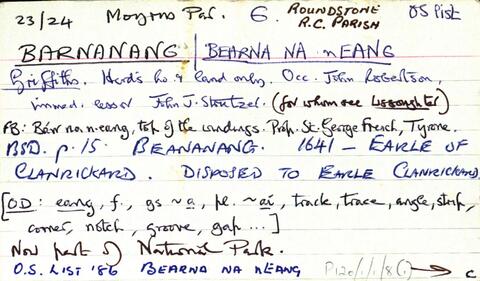 23/24 Moyrus Par. 6. ROUNDSTONE R.C. PARISH OS List
BARNANANG | BEARNA NA nEANG
Griffiths. Herd's ho. & land only. Occ. John Robertson,
immed. lessor John J. Stoutzel. (for whom see Lissoughter)
FB: Bárr na n-eang, top of the windings. Prop. St. George French, Tyrone.
BSD. p. 15. BEANANANG. 1641 – EARLE OF
CLANRICKARD. DISPOSED TO EARLE CLANRICKARD.
[OD: eang, f., gs ~a, pl. ~aí, track, trace, angle, strip,
corner, notch, groove, gap ...]
Now part of National Park.
O.S. LIST '86 BEARNA NA nEANG P120/1/1/8(1) → C